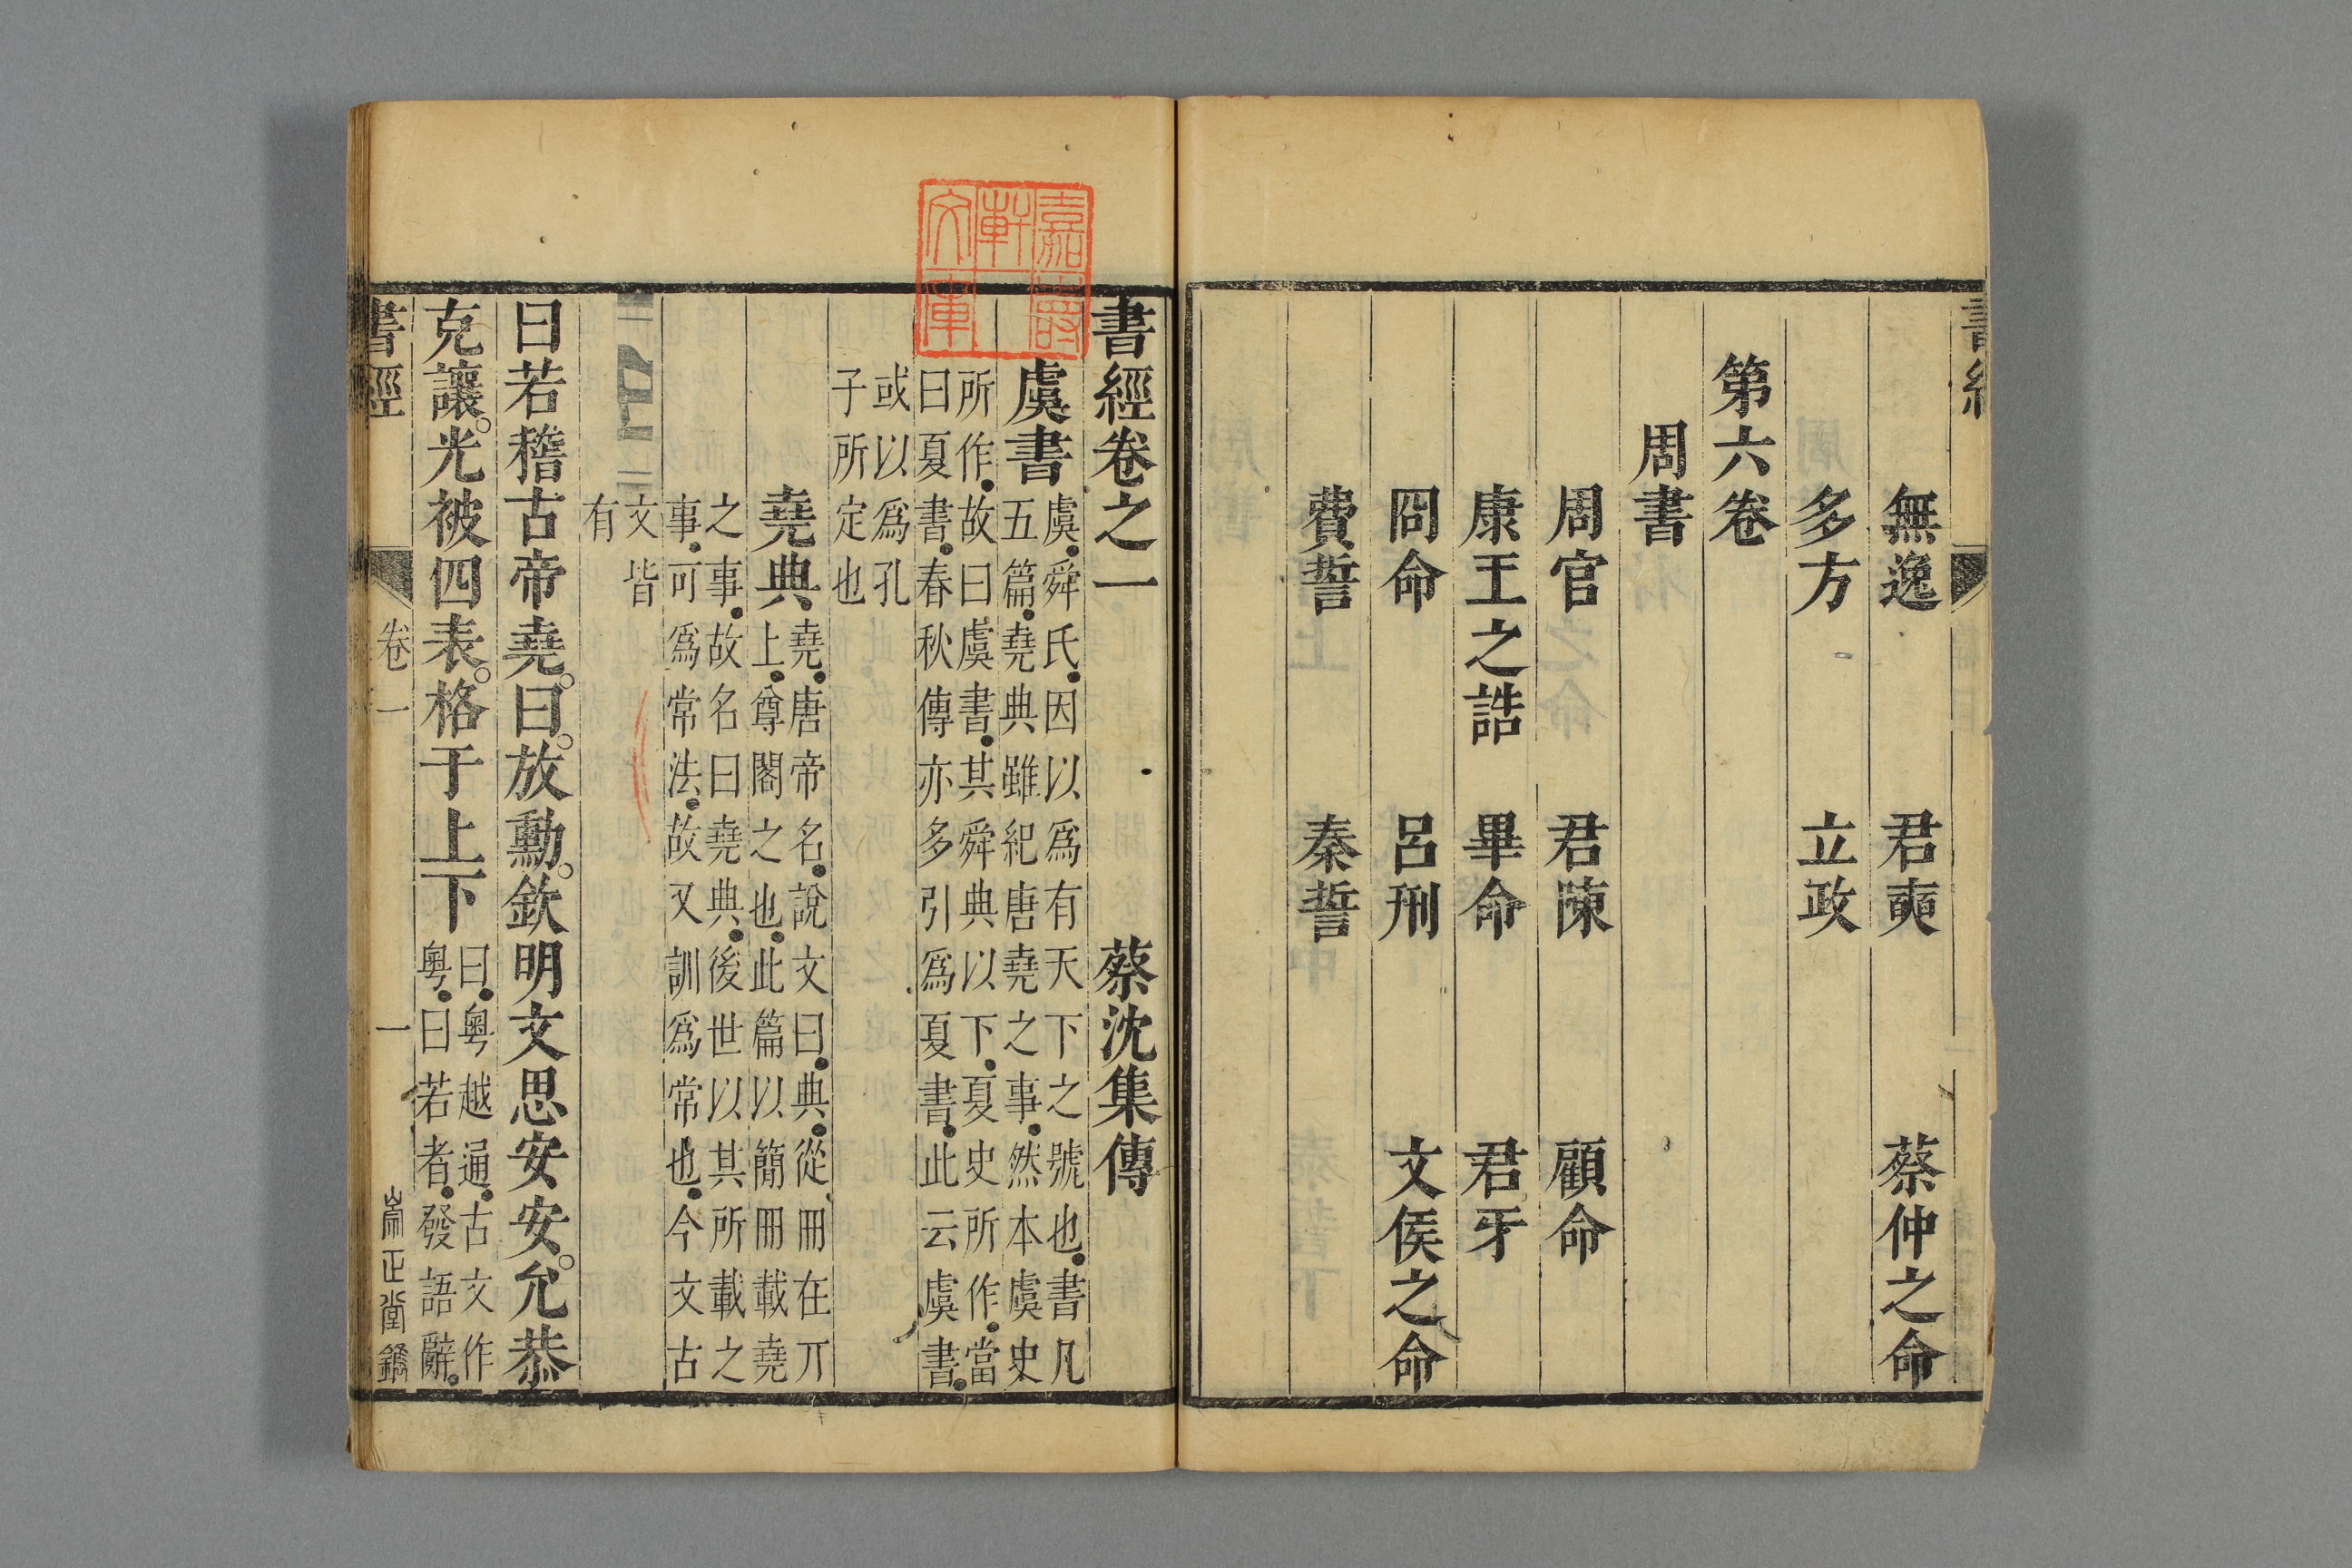 書經
無逸 君奭 蔡仲之命
多方 立政
第六卷
周書
周官 君陳 顧命
康王之誥 畢命 君牙
冏命 呂刑 文侯之命
費誓 秦誓
嘉壽
軒
文庫
書經卷之一 蔡沈集傳
虞書
虞舜氏因以爲有天下之號也書凡
五篇堯典雖紀唐堯之事然本虞史
所作故曰虞書其舜典以下夏史所作當
曰夏書春秋傳亦多引爲夏書此云虞書
或以爲孔
子所定也
堯典
堯唐帝名說文曰典從冊在丌
上尊閣之也此篇以簡冊載堯
之事故名曰堯典後世以其所載之
事可爲常法故又訓爲常也今文古
文皆
有
曰若稽古帝堯。曰。放勳。欽明文思安安。允恭
克讓。光被四表。格于上下
曰粵越通古文作
粵曰若者發語辭
書經 卷一 一 崇正堂鐫